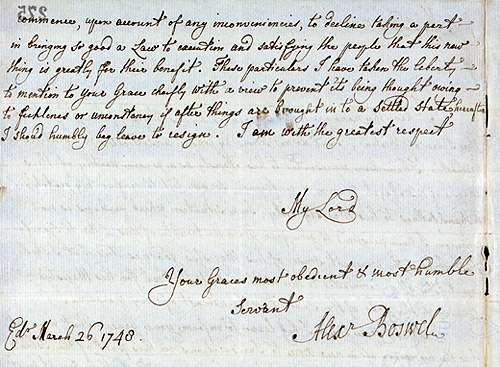 275
commence, upon account of any inconveniencies, to decline taking a part
in bringing so good a Law to execution and satisfying the people that this new
thing is greatly for their benefit. These particulars I have taken the liberty
to mention to your Grace chiefly with a view to prevent its being thought owing
to fickleness or unconstancy if after things are brought in to a settled state hereafter
I should humbly beg leave to resign. I am with the greatest respect
My Lord
Your Graces most obedient & most humble
Servant
Edr March 26 1748.
Alexr Boswel